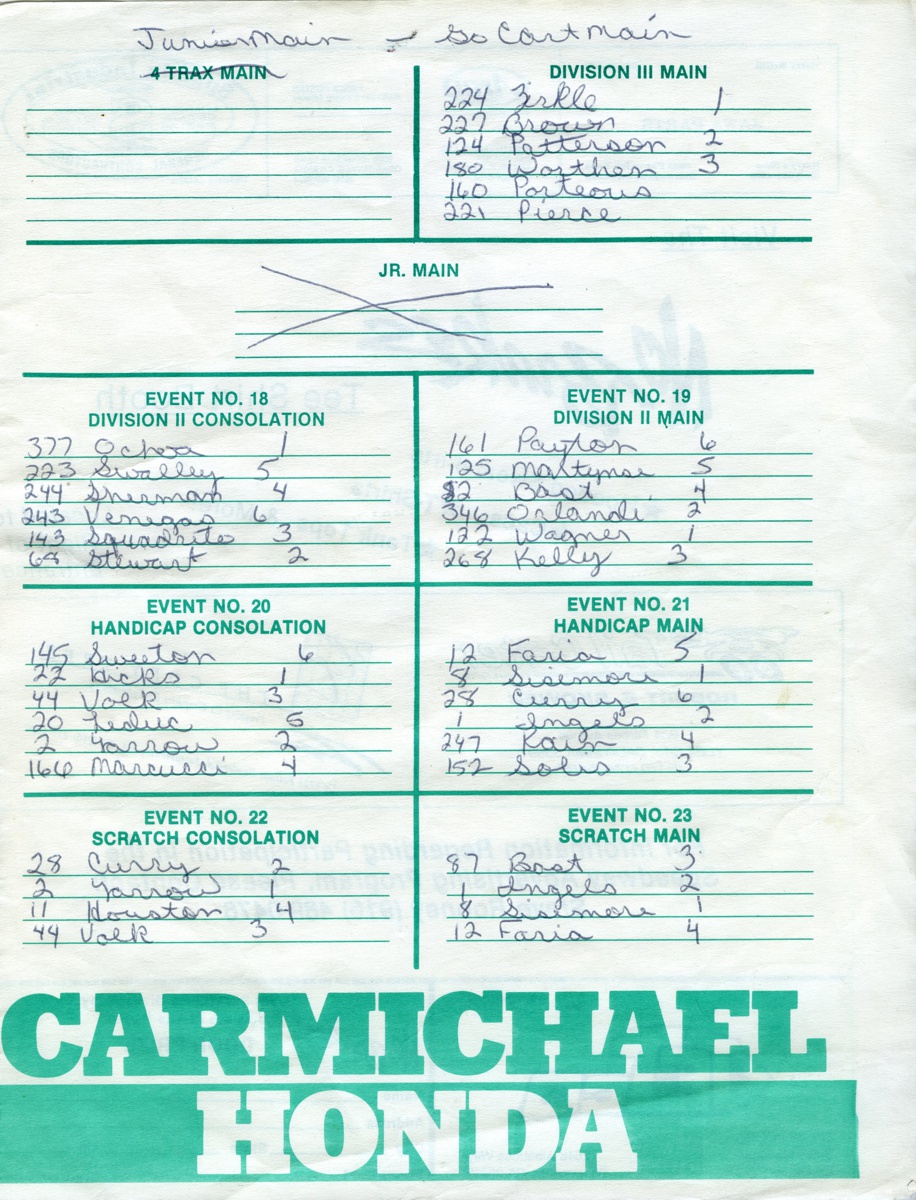 Junior Main - Go Cart Main
4 TRAX MAIN
DIVISION III MAIN
224 Zerkle 1
227 Brown
124 Patterson 2
180 Worthen 3
160 Porteous
221 Pierce
JR. MAIN
EVENT NO. 18
DIVISION II CONSOLATION
377 Ochoa 1
223 Swalley 5
244 Sherman 4
243 Venegas 6
143 Squadrito 3
68 Stewart 2
EVENT NO. 19
DIVISION II MAIN
161 Payton 6
125 5
Bast 4
346 Orlandi 2
122 Wagner 1
268 Kelly 3
EVENT NO. 20
HANDICAP CONSOLATION
145 Sweeton 6
22 Hicks 1
44 Volk 3
20 Leduc 5
2 Yarrow 2
166 Marcucci 4
EVENT NO. 21
HANDICAP MAIN
12 Faria 5
8 Sisemore 1
28 Curry 6
1 Ingels 2
247 Kain 4
152 Solis 3
EVENT NO. 22
SCRATCH CONSOLATION
28 Curry 2
2 Yarrow
11 Houston 4
44 Volk 3
EVENT NO. 23
SCRATCH MAIN
87 Bast 3
1 Ingels 2
8 Sisemore 1
12 Faria 4
CARMICHAEL
HONDA